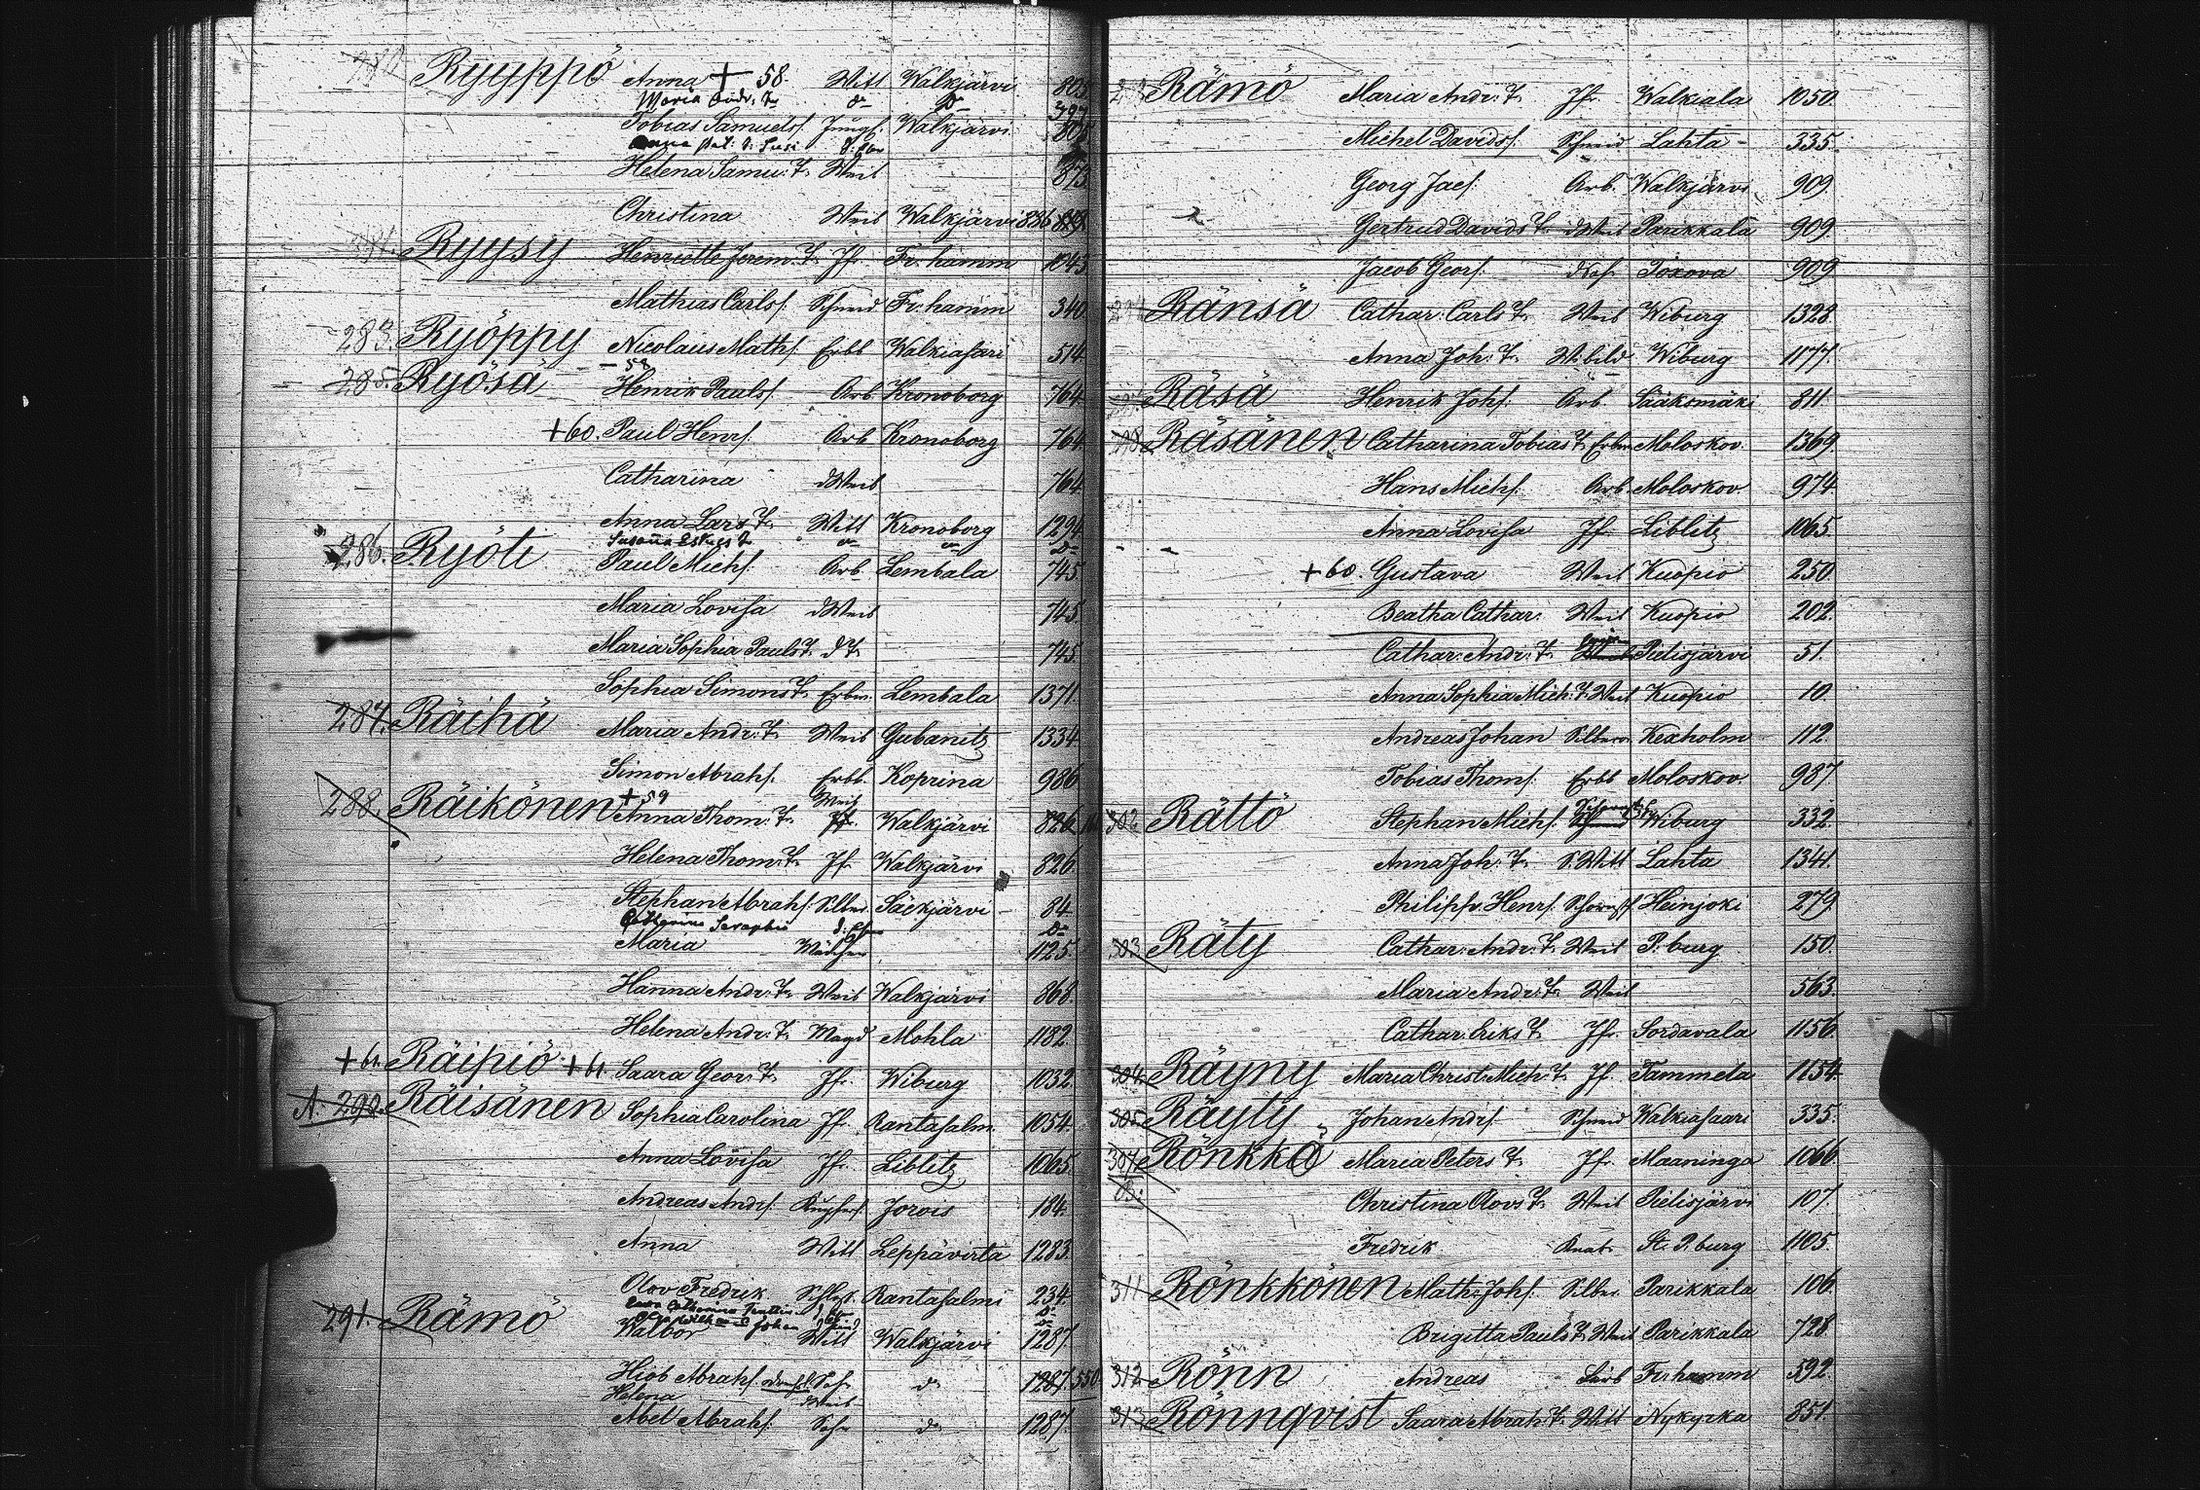 280 Ryyppö Anna + 58. Witt Walkjärvi 803
Maria Andr: T. d° D°
Tobias Samuels f. Jungf. Walkjärvi
Helena Samu: T. Weib 873
Christina Weib Walkjärvi 886
Ryysy Henriette Jerem: T. Jfr. Fr: hamm 1045
Mathias Carls f. Schneid Fr: hamm 340
283. Ryöppy Nicolaus Math f. Erbb Walkiasari 514
285. Ryösä Henrik Pauls f. Arb Kronoborg 764
+60. Paul Henr f. Arb Kronoborg 764
Catharina d Weib 764
Anna Lars T. Witt Kronoborg 1294
286. Ryöti Paul Mich f. Arb Lembala 745
Maria Lovisa d Weib 745
Maria Sophia Pauls T. d T. 745
Sophia Simons T. Erbm. Lembala 1371
287. Räihä Maria Andr: T. Weib Gubanitz 1334
Simon Abrah f. Erbb. Koprina 986
+59 Weib
288. Räikönen Anna Thom: T. Jfr. Walkjärvi 826
Helena Thom: T. Jf. Walkjärvi 826
Stephan Abrah f. Silber. Säckjärvi 84
Maria Mädchen 1125
Hanna Andr: T. Weib Walkjärvi 868
Helena Andr: T. Magd Mohla 1182
+61. Räipiö +61. Saara Geor: T. Jfr. Wiburg 1032
A. 290. Räisänen Sophia Carolina Jf. Rantasalm. 1054
Anna Lovisa Jfr. Liblitz 1065
Andreas Andr f. Kupfers f. Jorois 184
Anna Witt Leppävirta 1283
Olov Fredrik Schloss. Rantasalmi 234
291. Rämö Walbor Witt Walkjärvi 1287
Hiob Abrah f. Sohn d° 1287 550
Helena d Weib
Abel Abrah f. Sohn d° 1287
Rämö Maria Andr: T. Jfr. Walkiala 1050
Michel Davids f. Schneid Lahta 335
Georg Jac f. Arb. Walkjärvi 909
Gertrud Davids T. d Weib Parikkala 909
Jacob Geor f. d Sohn Toxova 909
Ränsä Cathar: Carls T. Weib Wiburg 1328
Anna Joh: T. Wiburg 1177
Räsä Henrik Joh f. Arb Sääksmäki 811
Räsänen Catharina Tobias T. Erbm Moloskov. 1369
Hans Mich f. Arb. Moloskov. 974
Anna Lovisa Jfr. Liblitz 1065
+60. Gustava Weib Kuopio 250
Beatha Cathar: Weib Kuopio 202
Cathar: Andr: T. Pielisjärvi 51
Anna Sophia Mich: T. Weib Kuopio 10
Andreas Johan Silber. Kexholm 112
Tobias Thom f. Erbb Moloskov. 987
302. Rättö Stephan Mich f. Wiburg 332
Anna Joh: T. S. Witt Lahta 1341
Philipp Henr f. Schornst f. Heinjoki 279
303. Räty Cathar: Andr: T. Weib P:burg 150
Maria Andr: T. Weib 563
Cathar: Eriks T. Jfr. Sordavala 1156
304. Räyny Maria Christ: Mich: T. Jf. Tammela 1154
305. Räyty Johan Andr f. Schneid Walkiasaari 335
307. Rönkkö Maria Peters T. Jfr. Maaninga 1066
Christina Olovs T. Weib Pielisjärvi 107
Fredrik Knabe St. P:burg 1105
311. Rönkkönen Math: Joh f. Silber. Parikkala 106
Brigitta Pauls T. Weib Parikkala 728
312. Rönn Andreas Fr:hamm 592
313. Rönnqvist Saara Abrah: T. Witt Nykyrka 851